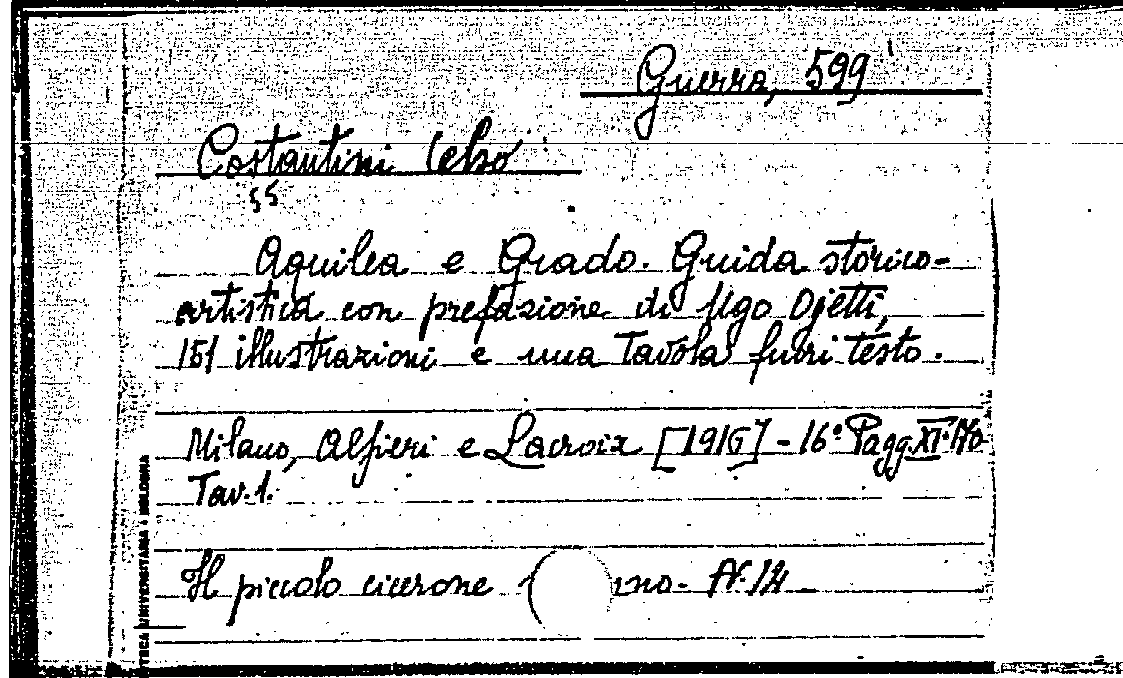 Guerra, 599
Costantini Celso
Aquileia e Grado. Guida storico-
artistica con prefazione di Ugo Ojetti,
151 illustrazioni e una tavola fuori testo.
Milano, Alfieri e Lacroix [1916] - 16° Pagg. XI-170
Tav. 1.
Il piccolo cicerone N. 14
UNIVERSITARIA BOLOGNA